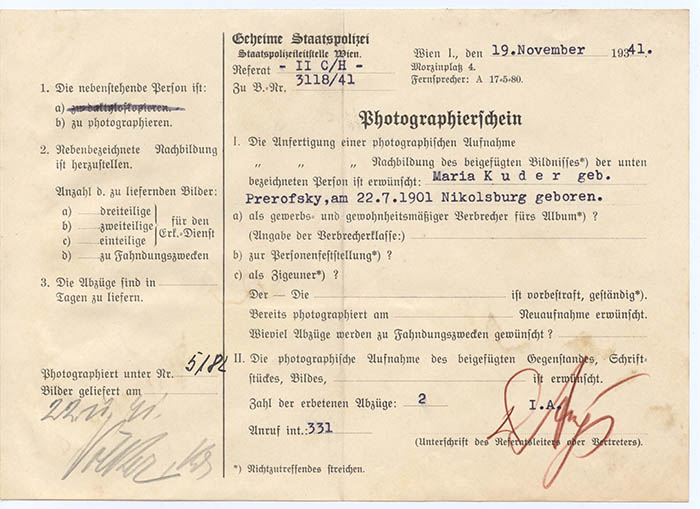 1. Die nebenstehende Person ist:
a) zu daktyloskopieren.
b) zu photographieren.
2. Nebenbezeichnete Nachbildung
ist herzustellen.
Anzahl d. zu liefernden Bilder:
a) dreiteilige
b) zweiteilige
c) einteilige
für den
Erk.-Dienst
d) zu Fahndungszwecken
3. Die Abzüge sind in
Tagen zu liefern.
Photographiert unter Nr.
Bilder geliefert am
Geheime Staatspolizei
Staatspolizeileitstelle Wien.
Referat - II C/H -
Zu B.-Nr. 3118/41
Wien I., den 19.November 19341.
Morzinplatz 4.
Fernsprecher: A 17-5-80.
Photographierschein
I. Die Anfertigung einer photographischen Aufnahme
„ „ „ Nachbildung des beigefügten Bildnisses*) der unten
bezeichneten Person ist erwünscht: Maria K u d e r geb.
Prerofsky,am 22.7.1901 Nikolsburg geboren.
a) als gewerbs- und gewohnheitsmäßiger Verbrecher fürs Album*) ?
(Angabe der Verbrecherklasse:)
b) zur Personenfeststellung*) ?
c) als Zigeuner*) ?
Der — Die ist vorbestraft, geständig*).
Bereits photographiert am Neuaufnahme erwünscht.
Wieviel Abzüge werden zu Fahndungszwecken gewünscht ?
II. Die photographische Aufnahme des beigefügten Gegenstandes, Schrift-
stückes, Bildes, ist erwünscht.
Zahl der erbetenen Abzüge: 2 I.A.
Anruf int.: 331
(Unterschrift des Referatsleiters oder Vertreters).
*) Nichtzutreffendes streichen.